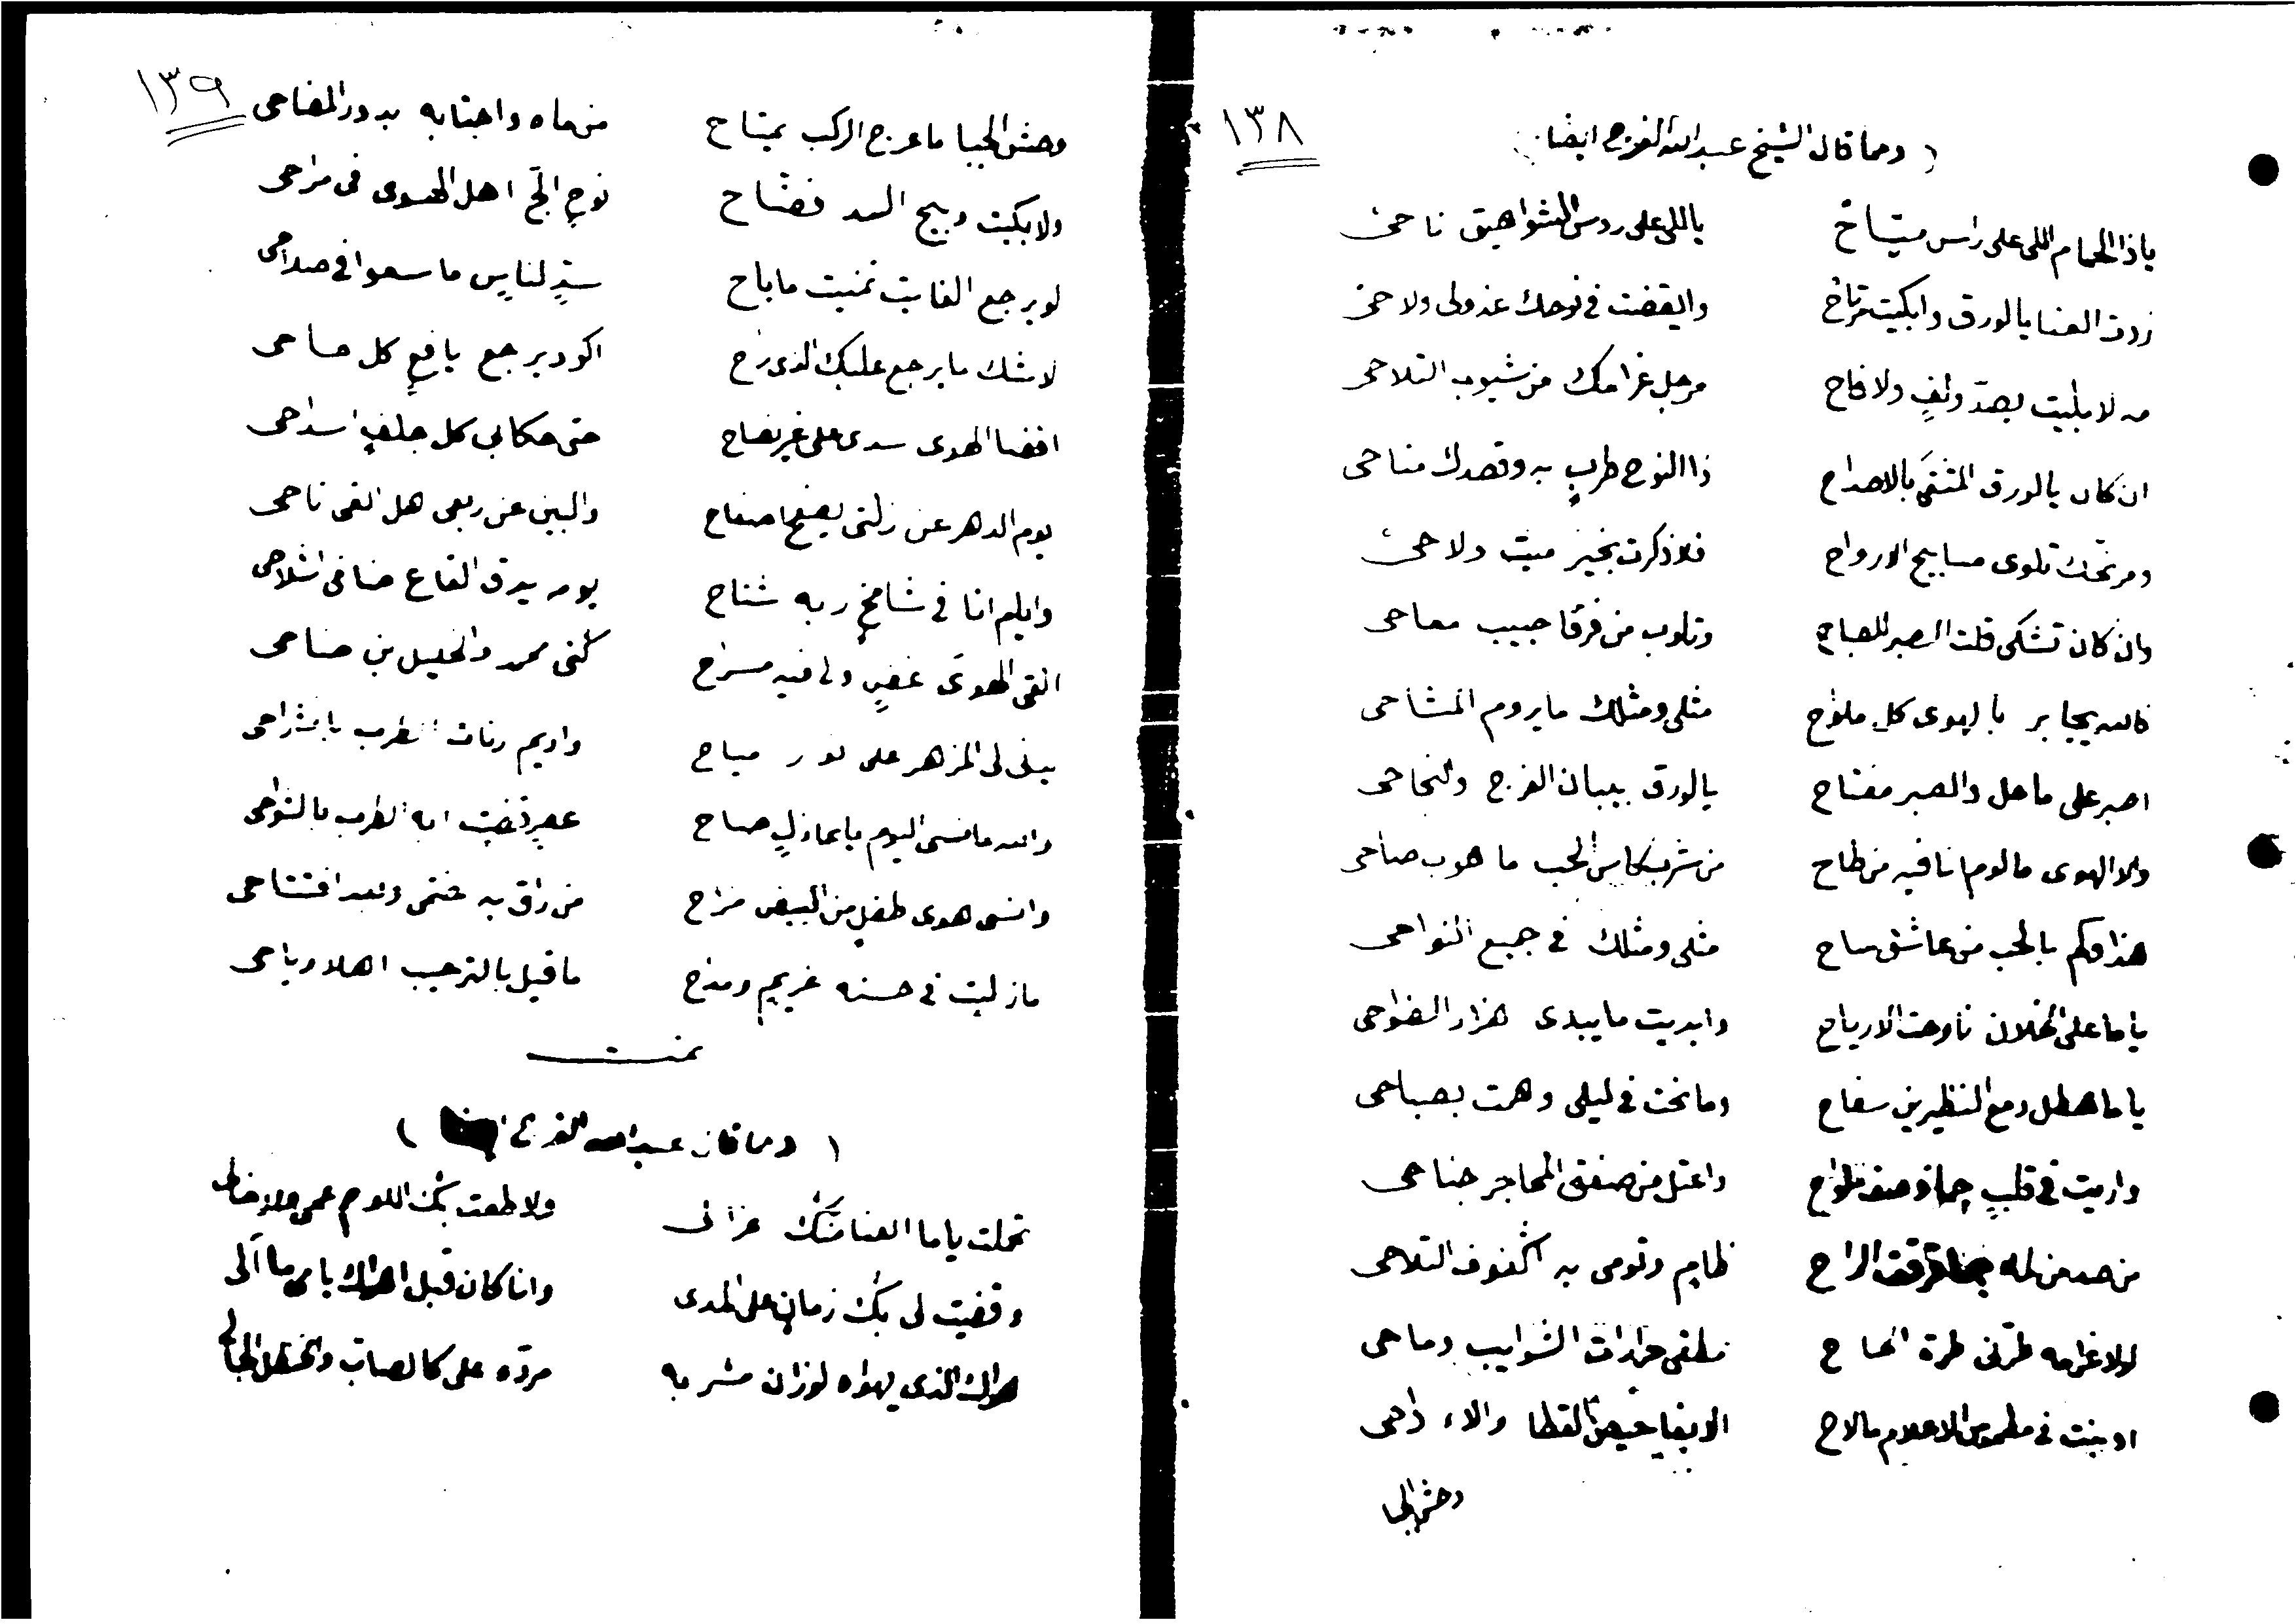 ١٣٨
( ومما قال الشيخ عبدالله الفرج ايضا )
ياذا الحمام اللي على راس متياح ياللي على روس الشواهيق ناحي
زدت العنا يالورق وابكيت مرتاح وايقضت في نوحك عذولي ولاحي
مه لا بليت بصدّ ولفٍ ولا فاح مرجل غرامك من شبوب التلاحي
ان كان يالورق المثنى بالاصداح ذا النوح طربٍ به وقصدك مناحي
ومرتحك تلوى مسابيح الارواح فلا ذكرت بخير ميت ولا حي
وان كان تشكي قلت الصبر للصباح وتلوب من فرقا حبيب معاحي
فالله يجابر بالهوى كل ملواح مثلي ومثلك ما يروم المشاحي
اصبر على ما حل والصبر مفتاح يالورق بيبان الفرج والنجاحي
والا الهوى مالوم انا فيه من طاح من شرب كاس الحب ما هوب صاحي
هذا وكم بالحب من عاشق ساح مثلي ومثلك في جميع النواحي
ياما على الخلان ناوحت الارياح وابديت ما يبدى هزار الضواحي
ياما هطل دمع النظيرين سفاح وما نحت في ليلي وهمت بصباحي
واريت في قلبي واعتل من صفقي المحاجر جناحي
من صد من له الراح ظامٍ وتومي به اكفوف التلاحي
لولا غرامه طرّني طرة الماح ملقي حرارات الشوايب وماحي
او بنت في مطموس الاعلام مالاح الا بقا حيص القطا والاء داحي
وحش الجبا
١٣٩
وحش الجبا ما عرج الركب يمتاح من ماه واجتابه بدور المفاحي
ولا بكيت وبيح السد فضاح نوحٍ الجّ اهل الهوى في مراحي
لو يرجع الفايت تمنيت ما باح سدٍ لناسٍ ما سعوا في صداحي
لا شك ما يرجع عليك الذي راح اكود يرجع يافعٍ كل صاحي
افضا الهوى سدي على غير نصاح حتى حكا بي كل جلفٍ اسداحي
يوم الدهر عن زلتي يصفح اصفاح والبين عن ربعي هل الفي ناحي
وايام انا في شامخٍ ربه شناح يومه يدق القاع ضافي اشلاحي
القى الهوى غضٍ ولي فيه مسراح كني محمد والخليل بن ضاحي
يبني لي المزهر على نور مباح واديم رنات الطرب بانشراحي
والله ما نسى اليوم ياعاذلٍ صاح عصرٍ قضيت ابه الطرب بالتواحي
وانسى هوى طفلٍ من البيض مزاح من راق به ختمي وبعد افتتاحي
مازلت في حسنه غريمٍ ومداح ما قيل بالترحيب اهلا ورياحي
تمت
( ومما قال عبدالله الفرج )
تحملت ياما العنا منك عزالي ولا طعت بك من اللوم عمي ولا خالي
وقضيت لي بك زمانٍ على المدى وانا كان قبل اهواك ياس ما آلي
هواك الذي يهواه لو زان مشربه مردّه على كالصاب والحنظل الجالي